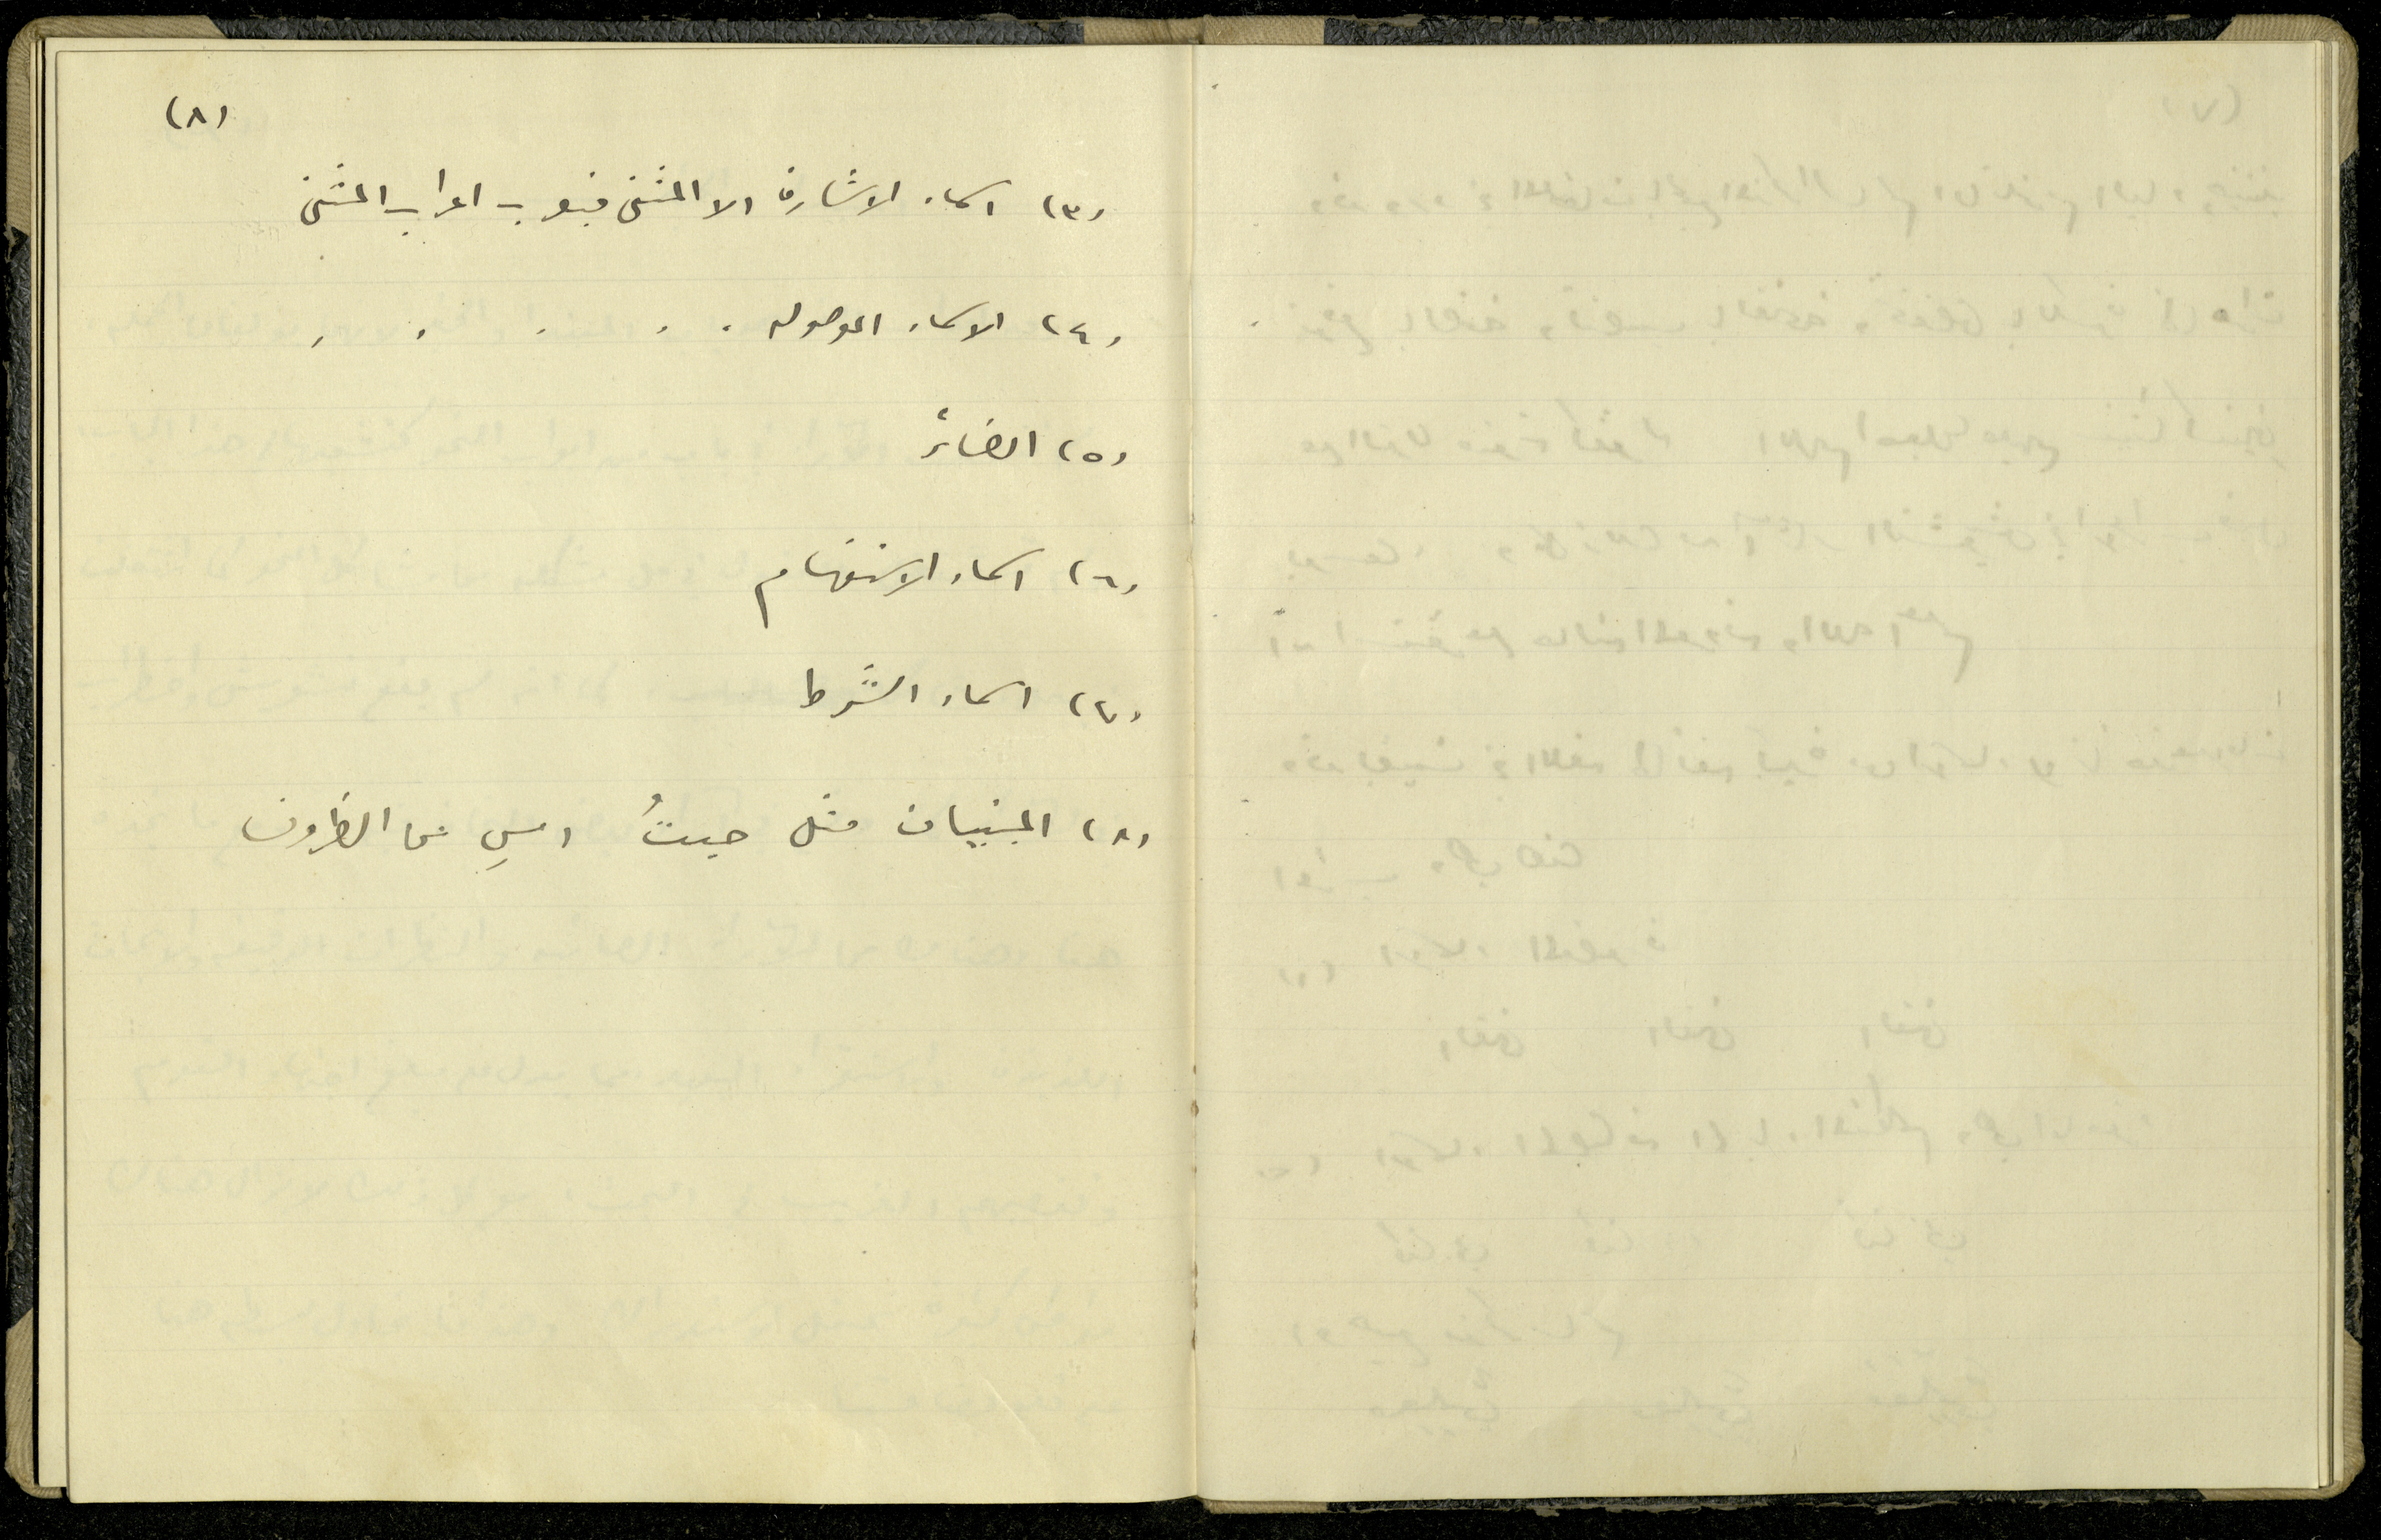 (٨)
(٣) اسماء الاشارة الا المثنى فيعرب اعراب المثنى
(٤) الاسماء الموصوله " " " " "
(٥) الضمائر
(٦) اسماء الاستفهام
(٧) اسماء الشرط
(٨) المبنيات مثل حيثُ امسِ من الظروف